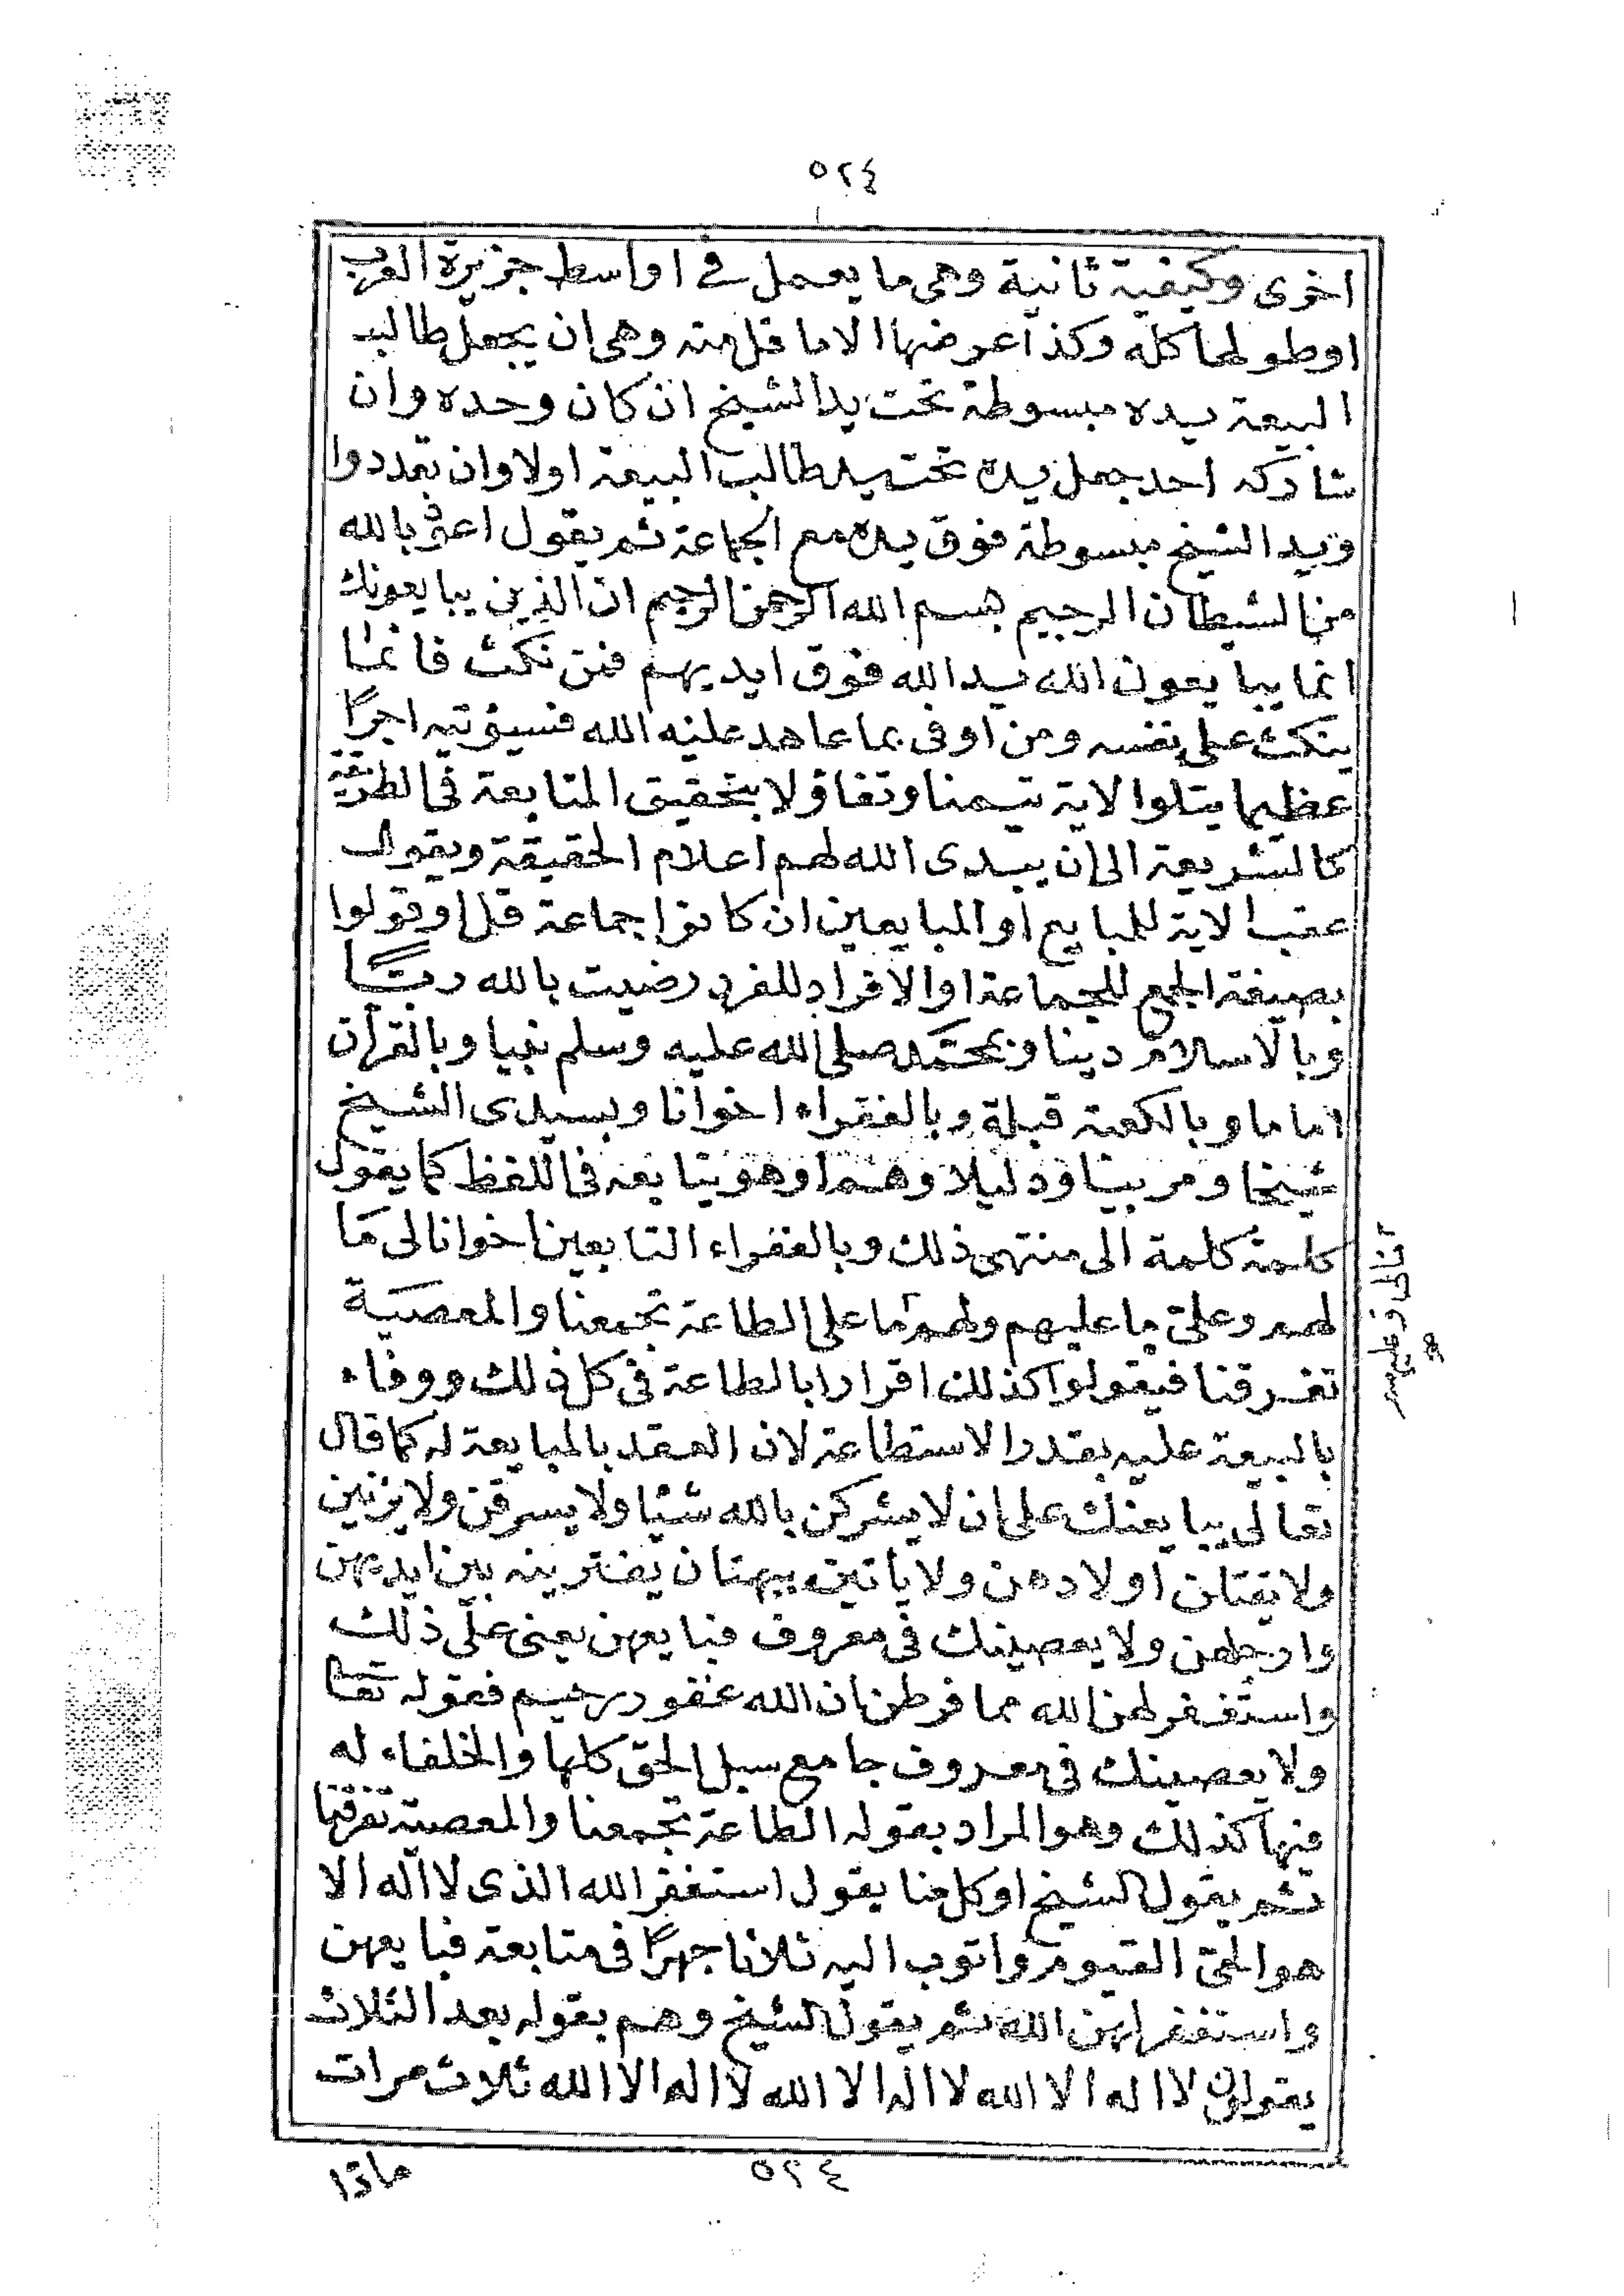 ٥٢٤
اخرى وكيفية ثانية وهى ما يعمل فى اواسط جزيرة العرب
اوطولها كله وكذا عرضها الا ما قل منه وهى ان يجعل طالب
البيعة يده مبسوطة تحت يد الشيخ ان كان وحده وان
شاركه احد جعل يده تحت يد طالب البيعة اولا وان تعددوا
ويد الشيخ مبسوطة فوق يده مع الجماعة ثم يقول اعوذ بالله
من الشيطان الرجيم بسم الله الرحمن الرحيم ان الذين يبايعونك
انما يبايعون الله يد الله فوق ايديهم فمن نكث فانما
ينكث على نفسه ومن اوفى بما عاهد عليه الله فسيؤتيه اجرًا
عظيما يتلوا الاية تيمنا وتفاؤلا بتحقيق المتابعة فى الطريقة
كالشريعة الى ان يبدى الله لهم اعلام الحقيقة ويقول
عقب الاية للمبايع او المبايعين ان كانوا جماعة قل او قولوا
بصيغة الجمع للجماعة او الافراد للفرد رضيت بالله ربًّا
وبالاسلام دينا وبمحمّد صلى الله عليه وسلم نبيا وبالقرآن
اماما وبالكعبة قبلة وبالفقراء اخوانا وبسيدى الشيخ
شيخا ومربيا ودليلا وهم او هو يتابعه فى اللفظ كما يقول
كلمة كلمة الى منتهى ذلك وبالفقراء التابعين اخوانا لى مَا
لهم وعلىّ ما عليهم ولهم ما على الطاعة تجمعنا والمعصيَة
تفرقنا فيقولوا كذلك اقرارا بالطاعة فى كل ذلك ووفاء
بالبيعة عليه بقدر الاستطاعة لان العقد بالمبايعة له كما قال
تعالى يبايعنك على ان لا يشركن بالله شيئا ولا يسرقن ولا يزنين
ولا يقتلن اولادهن ولا يأتين ببهتان يفترينه بين ايديهن
وارجلهن ولا يعصينك فى معروف فبايعهن يعنى على ذلك
واستغفر لهن الله مما فرطن ان الله غفور رحيم فقوله تعا
ولا يعصينك فى معروف جامع سبل الحق كلها والخلفاء له
فيها كذلك وهو المراد بقوله الطاعة تجمعنا والمعصية تفرقنا
ثم يقول الشيخ او كل منا يقول استغفر الله الذى لا اله الا
هو الحىّ القيوم واتوب اليه ثلاثا جهرًا فى متابعة فبايعهن
واستغفر لهن الله ثم يقول الشيخ وهم بقوله بعد الثلاث
يقولون لا اله الا الله لا اله الا الله لا اله الا الله ثلاث مرات
٥٢٤